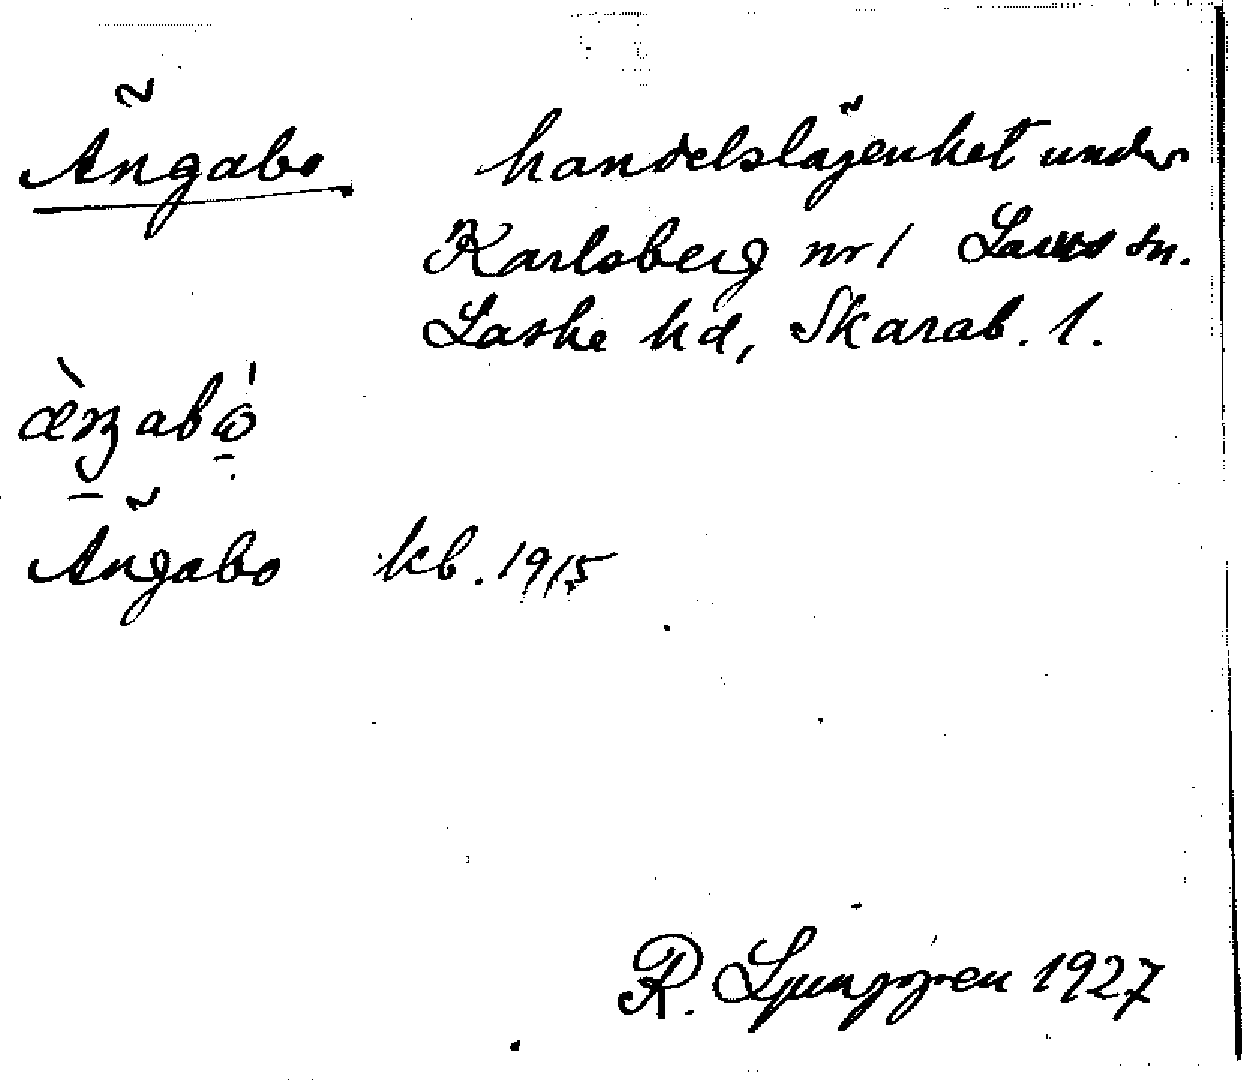 Ängabo handelslägenhet under
Karlsberg nr 1 sn.
Laske hd, Skarab. l.
Ängabo kb. 1915
R. Ljunggren 1927